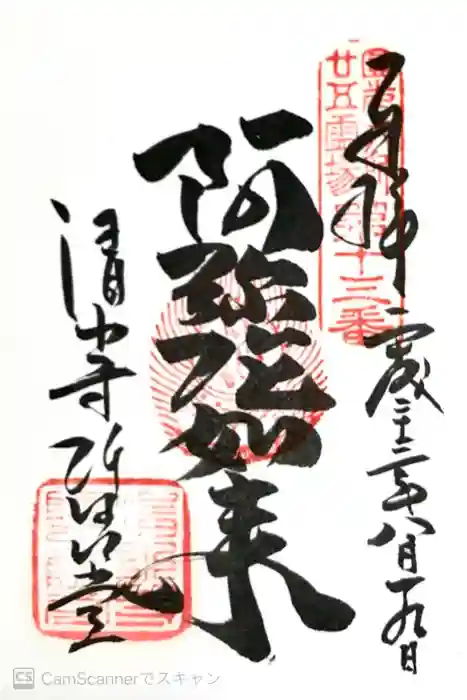 奉拝
平成二十二年八月十九日
圓光大師
廿五霊場第十三番
阿弥陀如来
清水寺阿弥陀堂
CamScannerでスキャン